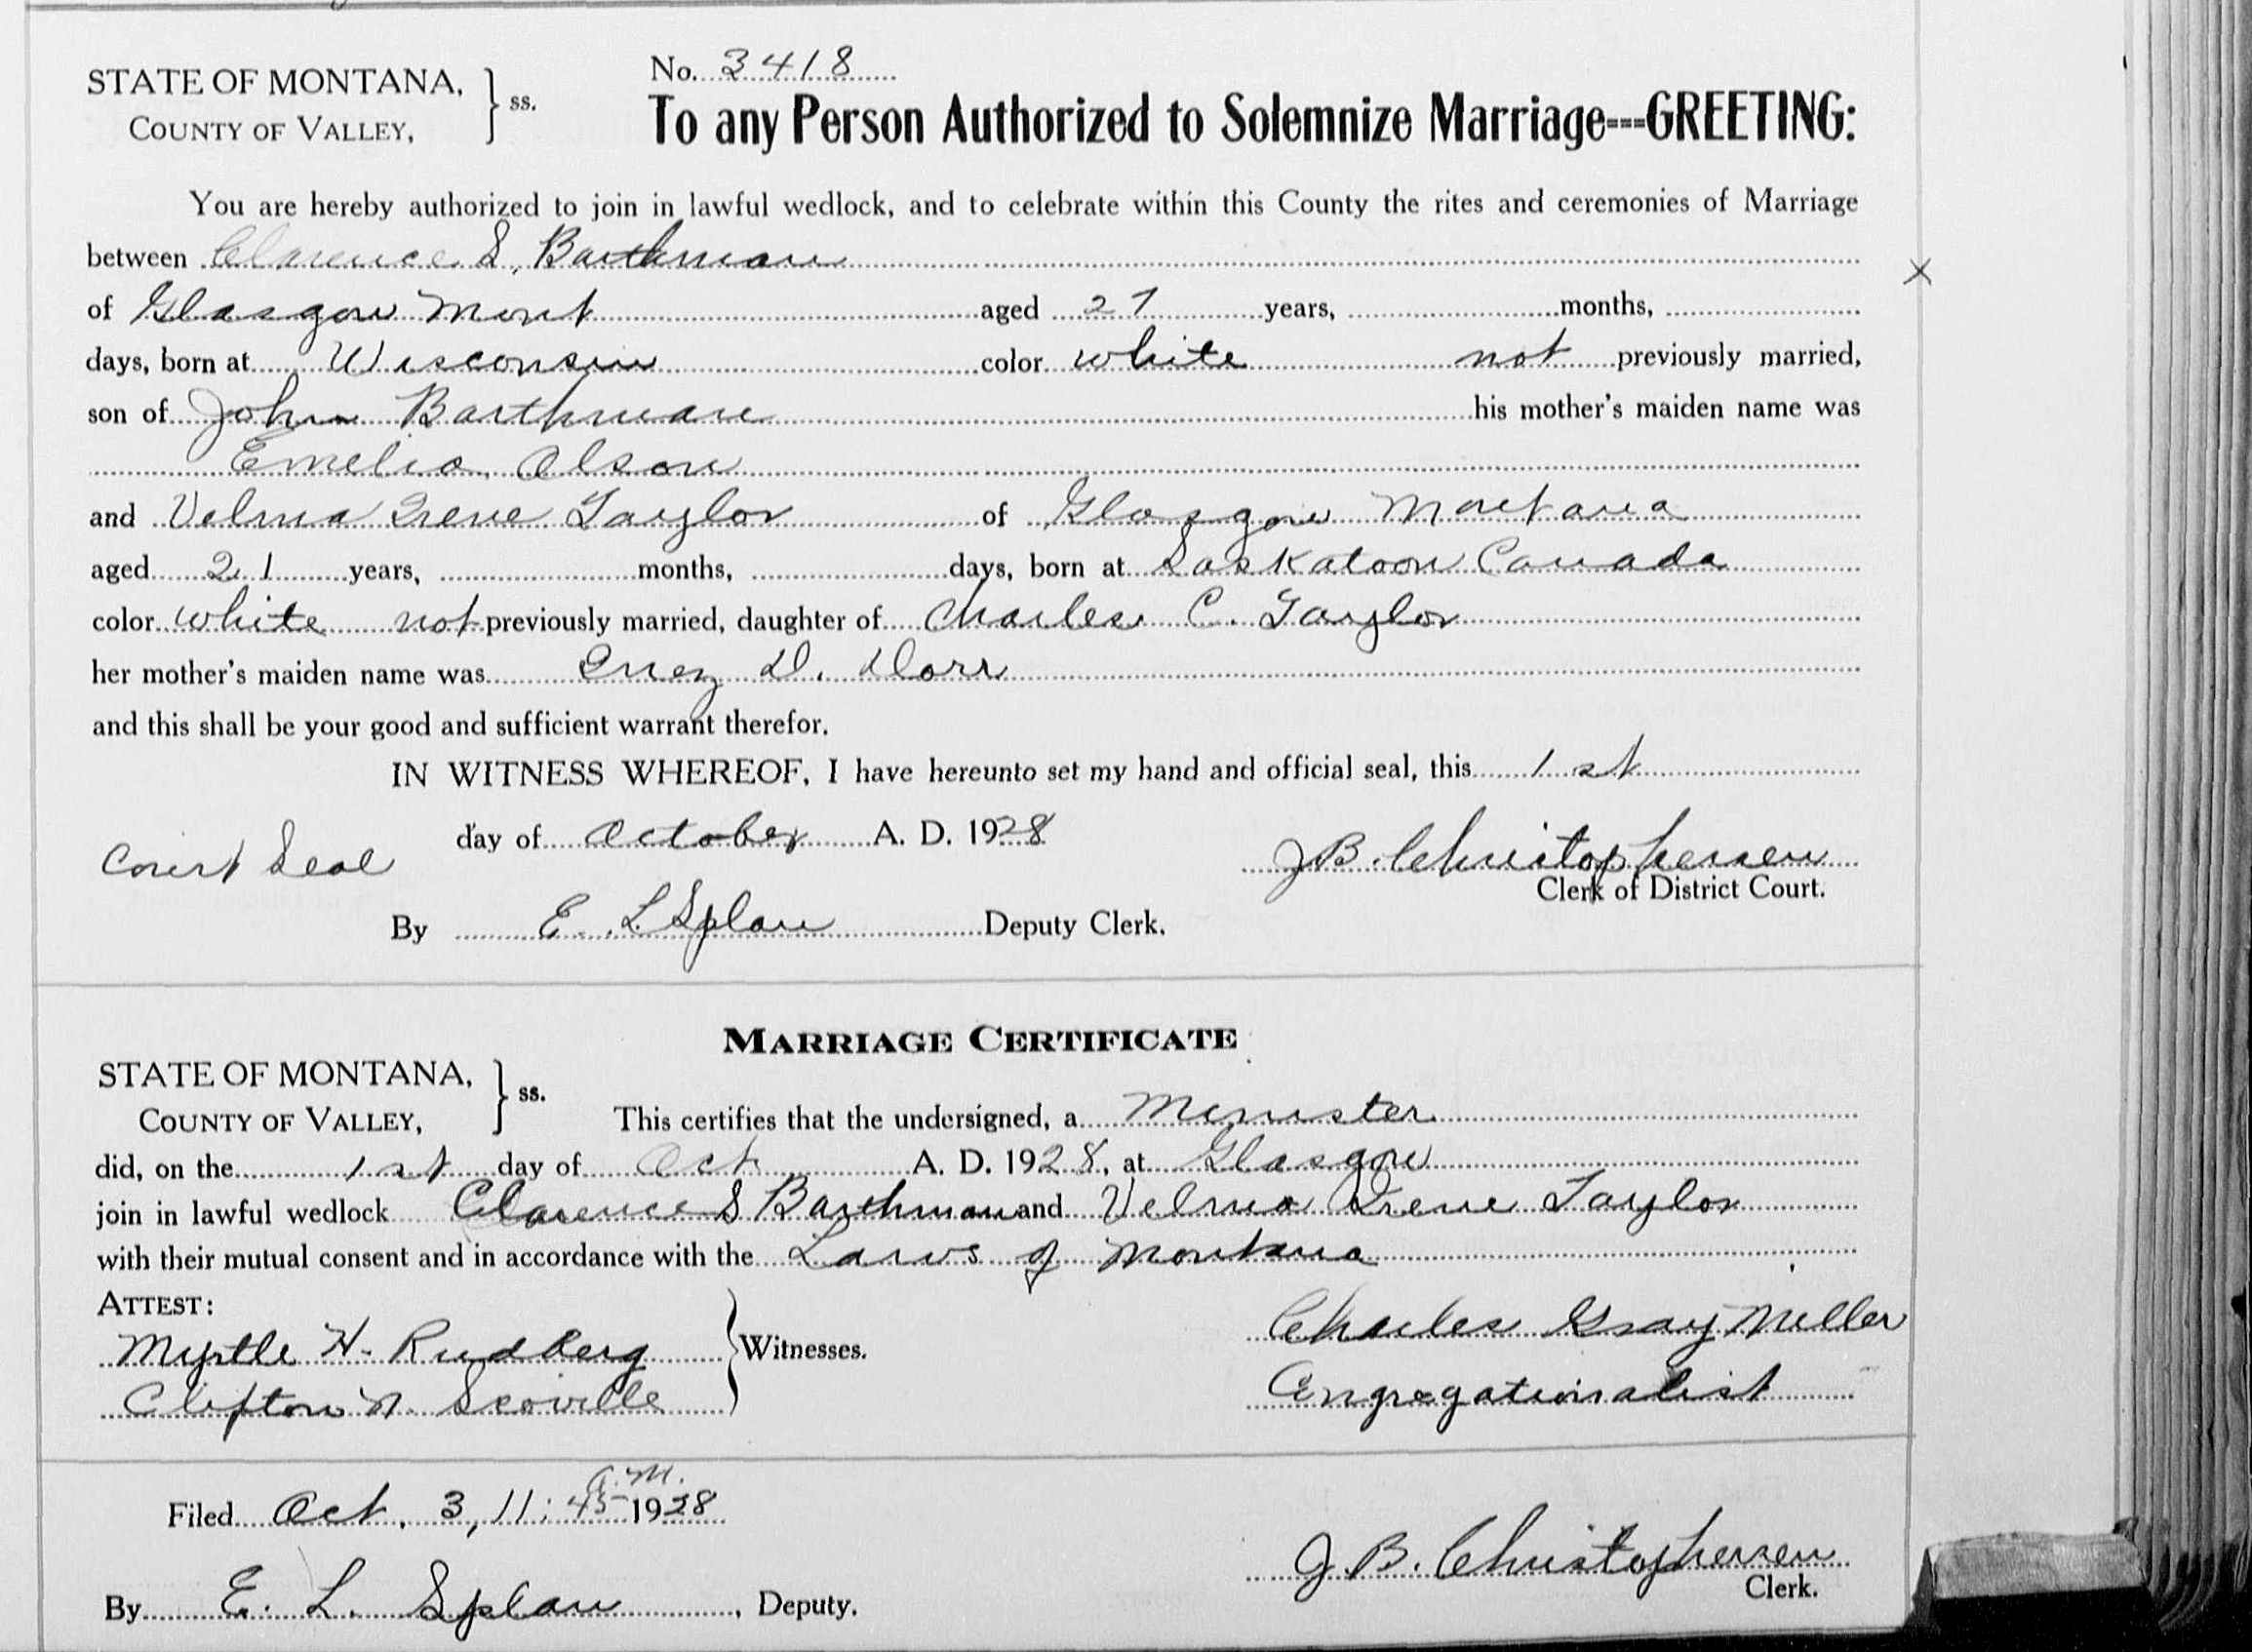 No. 3418
STATE OF MONTANA,
COUNTY OF VALLEY,
ss.
To any Person Authorized to Solemnize Marriage---GREETING:
You are hereby authorized to join in lawful wedlock, and to celebrate within this County the rites and ceremonies of Marriage
between Clarence S. Barthman
of Glasgow Mont aged 27 years, months,
days, born at Wisconsin color white not previously married,
son of John Barthman his mother's maiden name was
Emelia Olson
and Velma Irene Taylor of Glasgow Montana
aged 21 years, months, days, born at Saskatoon Canada
color white not previously married, daughter of Charles C. Taylor
her mother's maiden name was Inez D. Dorr
and this shall be your good and sufficient warrant therefor.
IN WITNESS WHEREOF, I have hereunto set my hand and official seal, this 1st
day of October A. D. 1928
Court Seal
J B. Christophersen
Clerk of District Court.
By E. L Splan Deputy Clerk.
MARRIAGE CERTIFICATE
STATE OF MONTANA,
COUNTY OF VALLEY,
ss.
This certifies that the undersigned, a Minister
did, on the 1st day of Oct A. D. 1928, at Glasgow
join in lawful wedlock Clarence S Barthman and Velma Irene Taylor
with their mutual consent and in accordance with the Laws of Montana
ATTEST:
Myrtle H. Rudberg
Clifton N. Scoville
Witnesses.
Charles Gray Miller
Congregationalist
Filed Oct. 3, 11:45 A.M. 1928
J. B. Christophersen
Clerk.
By E. L. Splan, Deputy.